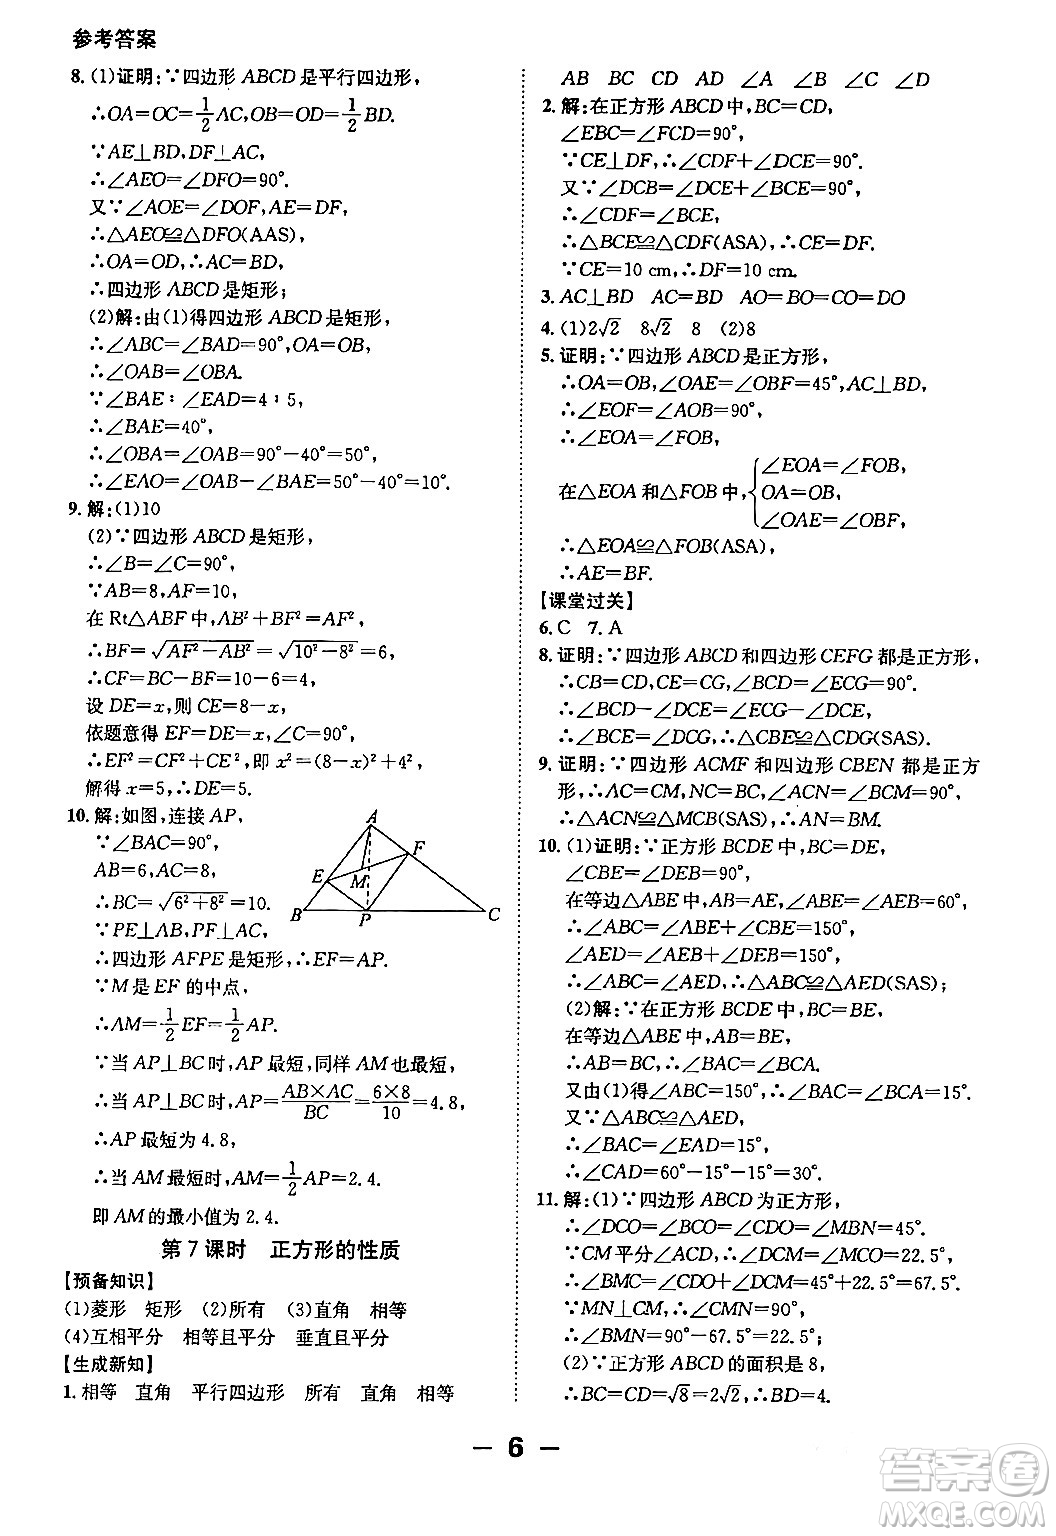 参考答案
8. (1)证明:∵四边形 ABCD 是平行四边形,
∴OA=OC=1/2 AC,OB=OD=1/2 BD.
∵AE⊥BD,DF⊥AC,
∴∠AEO=∠DFO=90°.
又∵∠AOE=∠DOF,AE=DF,
∴△AEO≌△DFO(AAS),
∴OA=OD,∴AC=BD,
∴四边形 ABCD 是矩形;
(2)解:由(1)得四边形 ABCD 是矩形,
∴∠ABC=∠BAD=90°,OA=OB,
∴∠OAB=∠OBA.
∵∠BAE∶∠EAD=4∶5,
∴∠BAE=40°,
∴∠OBA=∠OAB=90°-40°=50°,
∴∠EAO=∠OAB-∠BAE=50°-40°=10°.
9. 解:(1)10
(2)∵四边形 ABCD 是矩形,
∴∠B=∠C=90°,
∵AB=8,AF=10,
在 Rt△ABF 中,AB²+BF²=AF²,
∴BF=√(AF²-AB²)=√(10²-8²)=6,
∴CF=BC-BF=10-6=4,
设 DE=x,则 CE=8-x,
依题意得 EF=DE=x,∠C=90°,
∴EF²=CF²+CE²,即 x²=(8-x)²+4²,
解得 x=5,∴DE=5.
10. 解:如图,连接 AP,
∵∠BAC=90°,
AB=6,AC=8,
∴BC=√(6²+8²)=10.
∵PE⊥AB,PF⊥AC,
∴四边形 AFPE 是矩形,∴EF=AP.
∵M 是 EF 的中点,
∴AM=1/2 EF=1/2 AP.
∵当 AP⊥BC 时,AP 最短,同样 AM 也最短,
∴当 AP⊥BC 时,AP=AB×AC/BC=6×8/10=4.8,
∴AP 最短为 4.8,
∴当 AM 最短时,AM=1/2 AP=2.4,
即 AM 的最小值为 2.4.
A
F
E
M
B
P
C
第 7 课时 正方形的性质
【预备知识】
(1)菱形 矩形 (2)所有 (3)直角 相等
(4)互相平分 相等且平分 垂直且平分
【生成新知】
1. 相等 直角 平行四边形 所有 直角 相等
AB BC CD AD ∠A ∠B ∠C ∠D
2. 解:在正方形 ABCD 中,BC=CD,
∠EBC=∠FCD=90°,
∵CE⊥DF,∴∠CDF+∠DCE=90°.
又∵∠DCB=∠DCE+∠BCE=90°,
∴∠CDF=∠BCE,
∴△BCE≌△CDF(ASA),∴CE=DF.
∵CE=10 cm,∴DF=10 cm.
3. AC⊥BD AC=BD AO=BO=CO=DO
4. (1)2√2 8√2 8 (2)8
5. 证明:∵四边形 ABCD 是正方形,
∴OA=OB,∠OAE=∠OBF=45°,AC⊥BD,
∴∠EOF=∠AOB=90°,
∴∠EOA=∠FOB,
在△EOA 和△FOB 中,{∠EOA=∠FOB,
OA=OB,
∠OAE=∠OBF,
∴△EOA≌△FOB(ASA),
∴AE=BF.
【课堂过关】
6. C 7. A
8. 证明:∵四边形 ABCD 和四边形 CEFG 都是正方形,
∴CB=CD,CE=CG,∠BCD=∠ECG=90°,
∴∠BCD-∠DCE=∠ECG-∠DCE,
∴∠BCE=∠DCG,∴△CBE≌△CDG(SAS).
9. 证明:∵四边形 ACMF 和四边形 CBEN 都是正方
形,∴AC=CM,NC=BC,∠ACN=∠MCB=90°,
∴△ACN≌△MCB(SAS),∴AN=BM.
10. (1)证明:∵正方形 BCDE 中,BC=DE,
∠CBE=∠DEB=90°,
在等边△ABE 中,AB=AE,∠ABE=∠AEB=60°,
∴∠ABC=∠ABE+∠CBE=150°,
∠AED=∠AEB+∠DEB=150°,
∴∠ABC=∠AED,∴△ABC≌△AED(SAS);
(2)解:∵在正方形 BCDE 中,BC=BE,
在等边△ABE 中,AB=BE,
∴AB=BC,∴∠BAC=∠BCA.
又由(1)得∠ABC=150°,∴∠BAC=∠BCA=15°.
又∵△ABC≌△AED,
∴∠BAC=∠EAD=15°,
∴∠CAD=60°-15°-15°=30°.
11. 解:(1)∵四边形 ABCD 为正方形,
∴∠DCO=∠BCO=∠CDO=∠MBN=45°.
∵CM 平分∠ACD,∴∠DCM=∠MCO=22.5°,
∴∠BMC=∠CDM+∠DCM=45°+22.5°=67.5°.
∵MN⊥CM,∴∠CMN=90°,
∴∠BMN=90°-67.5°=22.5°;
(2)∵正方形 ABCD 的面积是 8,
∴BC=CD=√8=2√2,∴BD=4.
— 6 —
答案圈
MXQE.COM